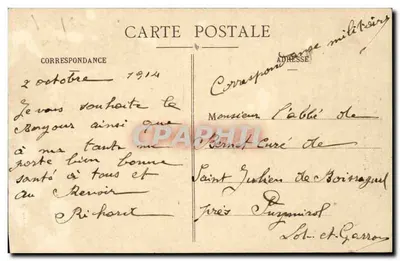 CARTE POSTALE
CORRESPONDANCE
ADRESSE
Correspondance militaire
2 octobre 1914
Je vous souhaite le
Bonjour ainsi que
à ma tante me
porte bien bonne
santé à tous et
au Revoir
Richard
Monsieur l'abbé de
curé de
Saint Julien de
près Puymirol
Lot-et-Garonne
CPAPHIL